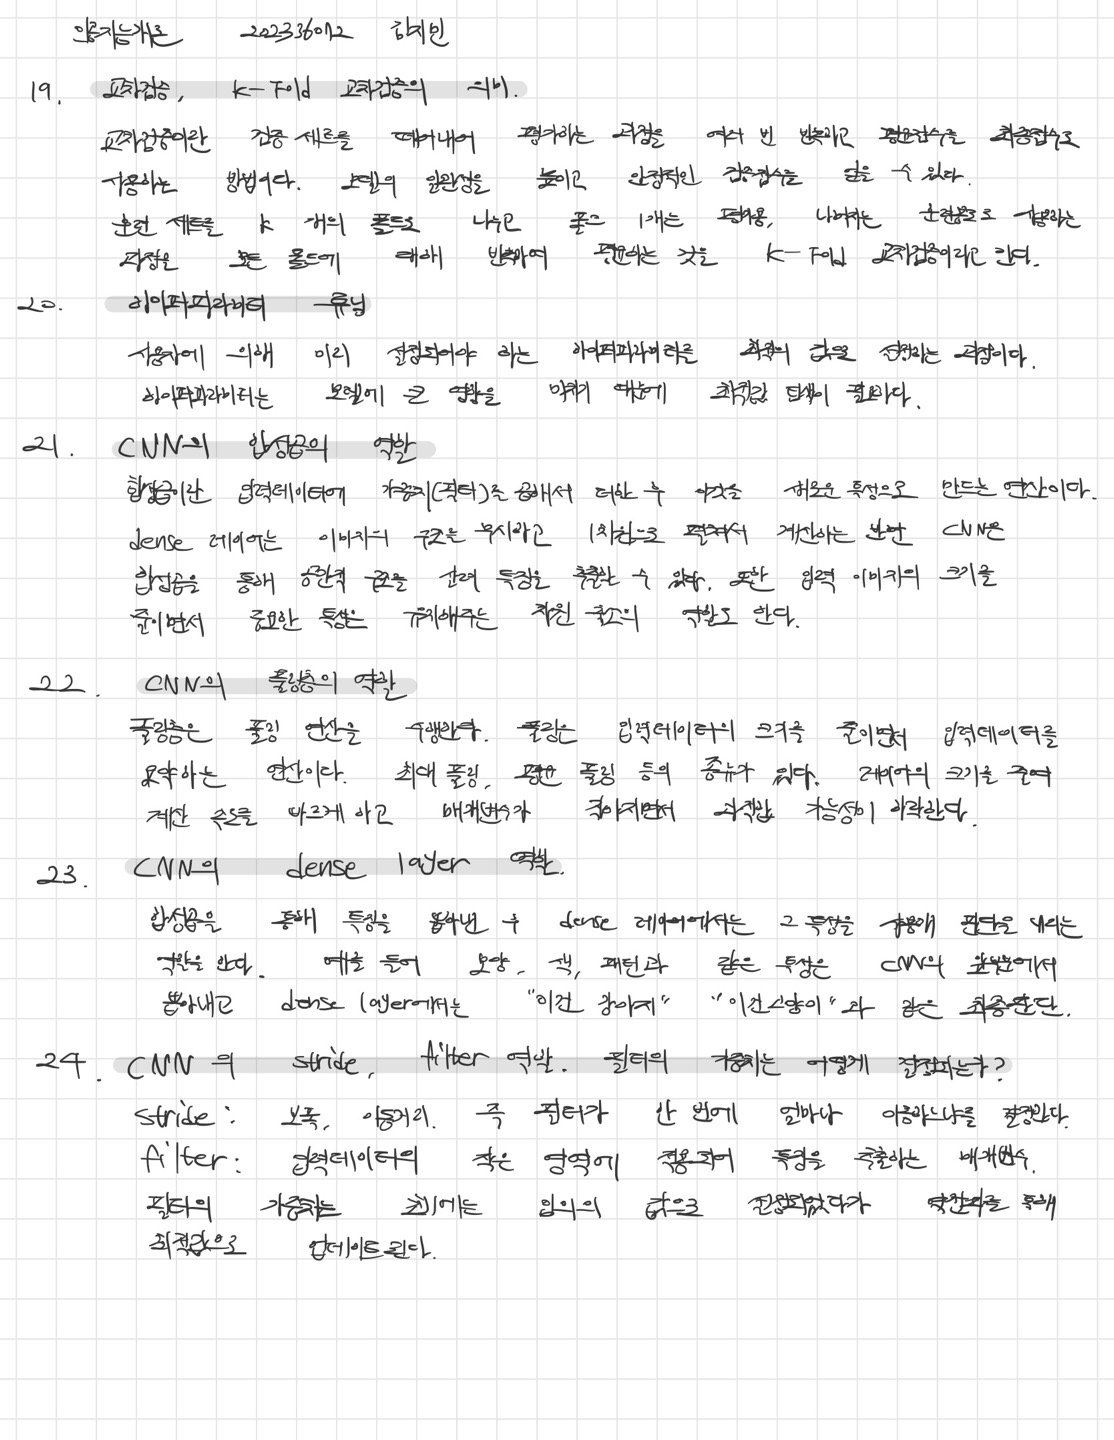 의료지능개론 202336072 김지민
19. 교차검증, k-Fold 교차검증의 의미.
교차검증이란 검증 세트를 떼어내어 평가하는 과정을 여러 번 반복하고 평균점수를 최종점수로
사용하는 방법이다. 모델의 일반성을 높이고 안정적인 검증점수를 얻을 수 있다.
훈련 세트를 k 개의 폴드로 나누고 폴드 1개는 평가용, 나머지는 훈련용으로 사용하는
과정을 모든 폴드에 대해 반복하여 평균내는 것을 k-Fold 교차검증이라고 한다.
20. 하이퍼파라미터 튜닝
사용자에 의해 미리 설정되어야 하는 하이퍼파라미터를 최적의 값을 선정하는 과정이다.
하이퍼파라미터는 모델에 큰 영향을 미치기 때문에 최적값 탐색이 필요하다.
21. CNN의 합성곱의 역할
합성곱이란 입력데이터에 가중치(필터)를 곱해서 더한 후 이것을 새로운 특성으로 만드는 연산이다.
dense 레이어는 이미지의 구조를 무시하고 1차원으로 펼쳐서 계산하는 반면 CNN은
합성곱을 통해 공간적 구조를 살려 특징을 추출할 수 있다. 또한 입력 이미지의 크기를
줄이면서 중요한 특성은 유지해주는 차원 축소의 역할도 한다.
22. CNN의 풀링층의 역할
풀링층은 풀링 연산을 수행한다. 풀링은 입력데이터의 크기를 줄이면서 입력데이터를
요약하는 연산이다. 최대 풀링, 평균 풀링 등의 종류가 있다. 레이어의 크기를 줄여
계산 속도를 빠르게 하고 매개변수가 적어지면서 과적합 가능성이 하락한다.
23. CNN의 dense layer 역할.
합성곱을 통해 특징을 뽑아낸 후 dense 레이어에서는 그 특성을 사용해 판단을 내리는
역할을 한다. 예를 들어 모양, 색, 패턴과 같은 특성은 CNN의 앞부분에서
뽑아내고 dense layer에서는 "이건 강아지" "이건 고양이"과 같은 최종판단.
24. CNN 의 stride, filter 역할. 필터의 가중치는 어떻게 결정되는가?
stride : 보폭, 이동거리. 즉 필터가 한 번에 얼마나 이동하느냐를 결정한다.
filter : 입력데이터의 작은 영역에 적용되어 특징을 추출하는 매개변수.
필터의 가중치는 초기에는 임의의 값으로 설정되었다가 역전파를 통해
최적값으로 업데이트된다.